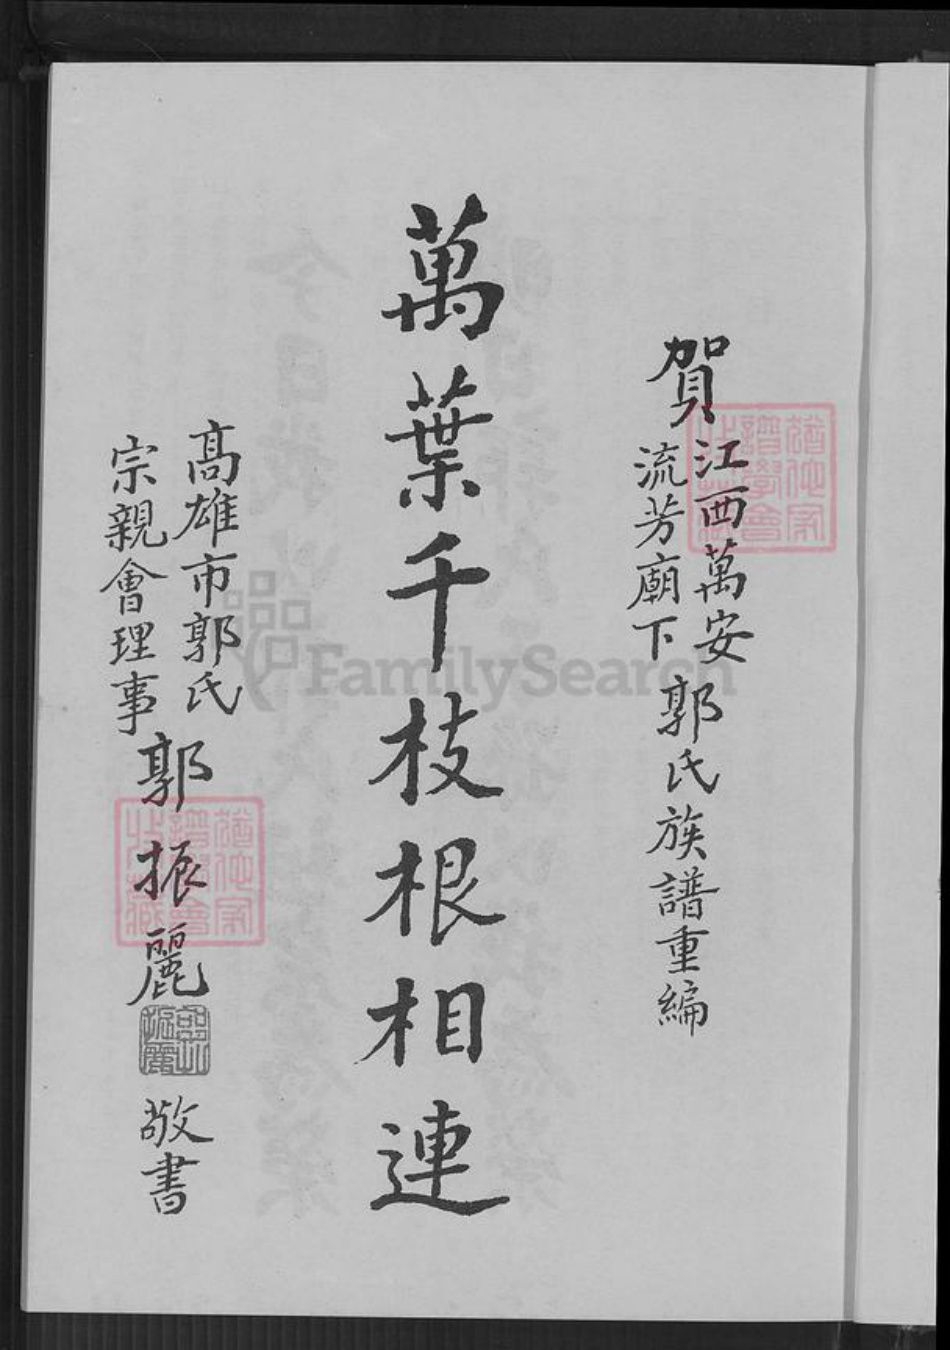 賀
江西萬安
流芳廟下
郭氏族譜重編
萬葉千枝根相連
高雄市郭氏
宗親會理事
郭振麗
敬書
FamilySearch